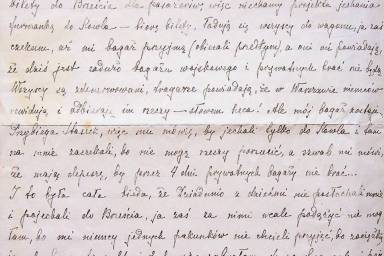 bilety do Brześcia dla pasażerów, więc niechamy projektu jechania
furmanką do Kowla – biorę bilety, ładują się wszyscy do wagonu, ja zaś
czekam, aż mi bagaż przyjmą (obiecali przedtem), a oni mi powiadają
że dziś jest zadużo bagażu wojskowego i prywatnych brać nie będą
Wszyscy są zdenerwowani, bagażowi powiadają, że w Warszawie niemcy
rewidują i odbierają im rzeczy – słowem heca! Ale mój bagaż zostaje.
Przybiega Staszek, więc mu mówię, by jechali tylko do Kowla i tam
na mnie zaczekali, bo nie mogę rzeczy porzucić, a szwab mi mówi,
że mają depeszę, by przez 4 dni prywatnych bagaży nie brać...
I to była cała bieda, że Dziadunio z dziećmi nie posłuchali mnie
i pojechali do Brześcia, ja zaś za nimi wcale podążyć nie mogłam
tam, bo mi niemcy jednych pakunków nie chcieli przyjąć, bo